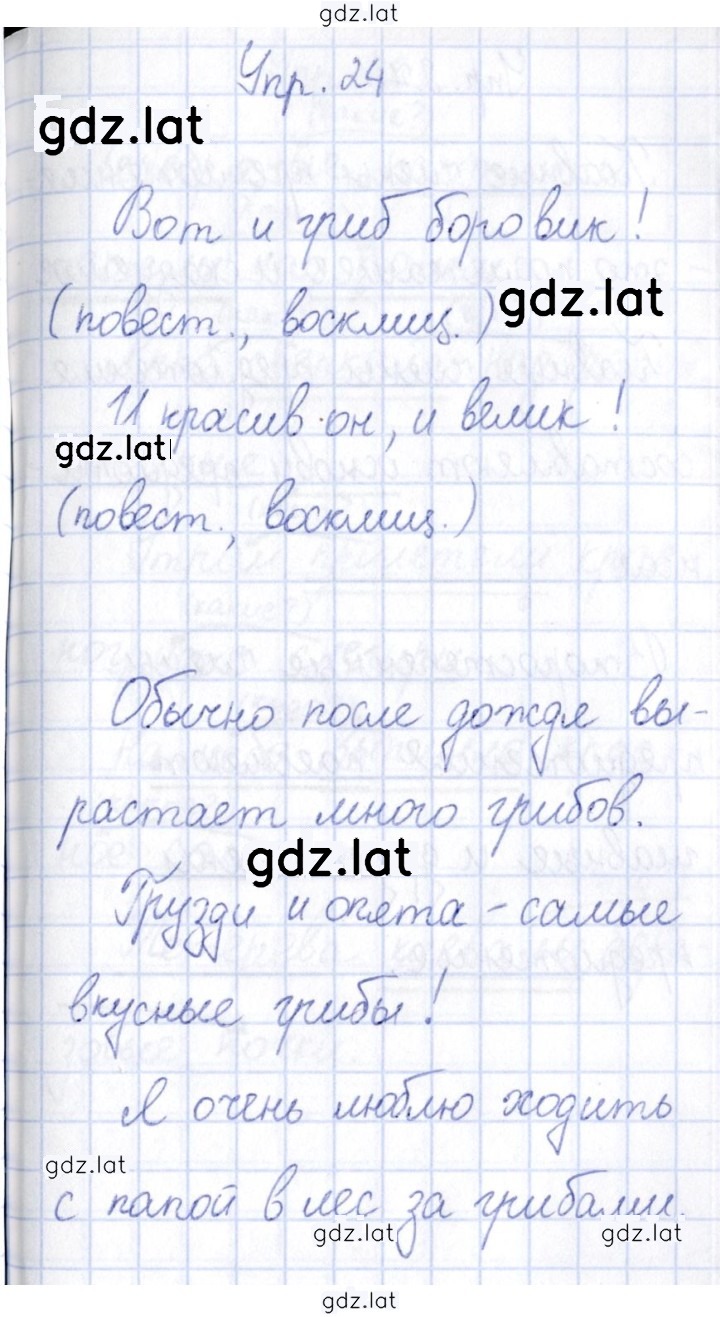 gdz.lat
Упр. 24
gdz.lat
Вот и гриб боровик!
gdz.lat
(повест., восклиц.)
И красив он, и велик!
gdz.lat
(повест., восклиц.)
Обычно после дождя вы-
растает много грибов.
gdz.lat
Грузди и опята - самые
вкусные грибы!
Я очень люблю ходить
gdz.lat
с папой в лес за грибами.
gdz.lat gdz.lat
gdz.lat